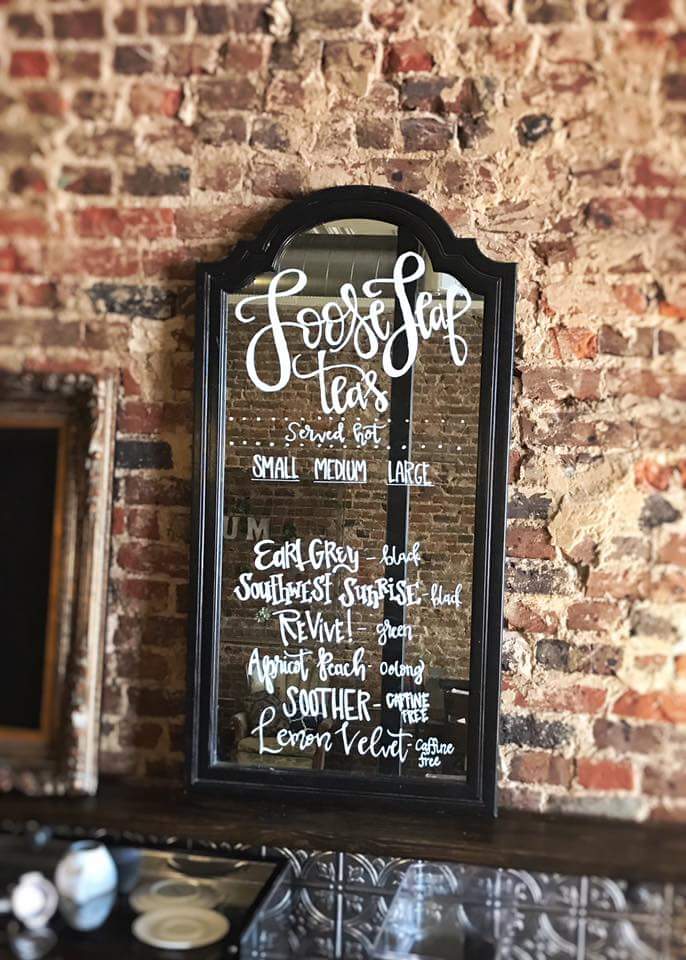 Loose Leaf
teas
Served hot
SMALL MEDIUM LARGE
UM
EARL GREY - black
SOUTHWEST SUNRISE - black
REVIVE! - green
Apricot Peach - Oolong
SOOTHER - CAFFINE
FREE
Lemon Velvet - Caffine
free